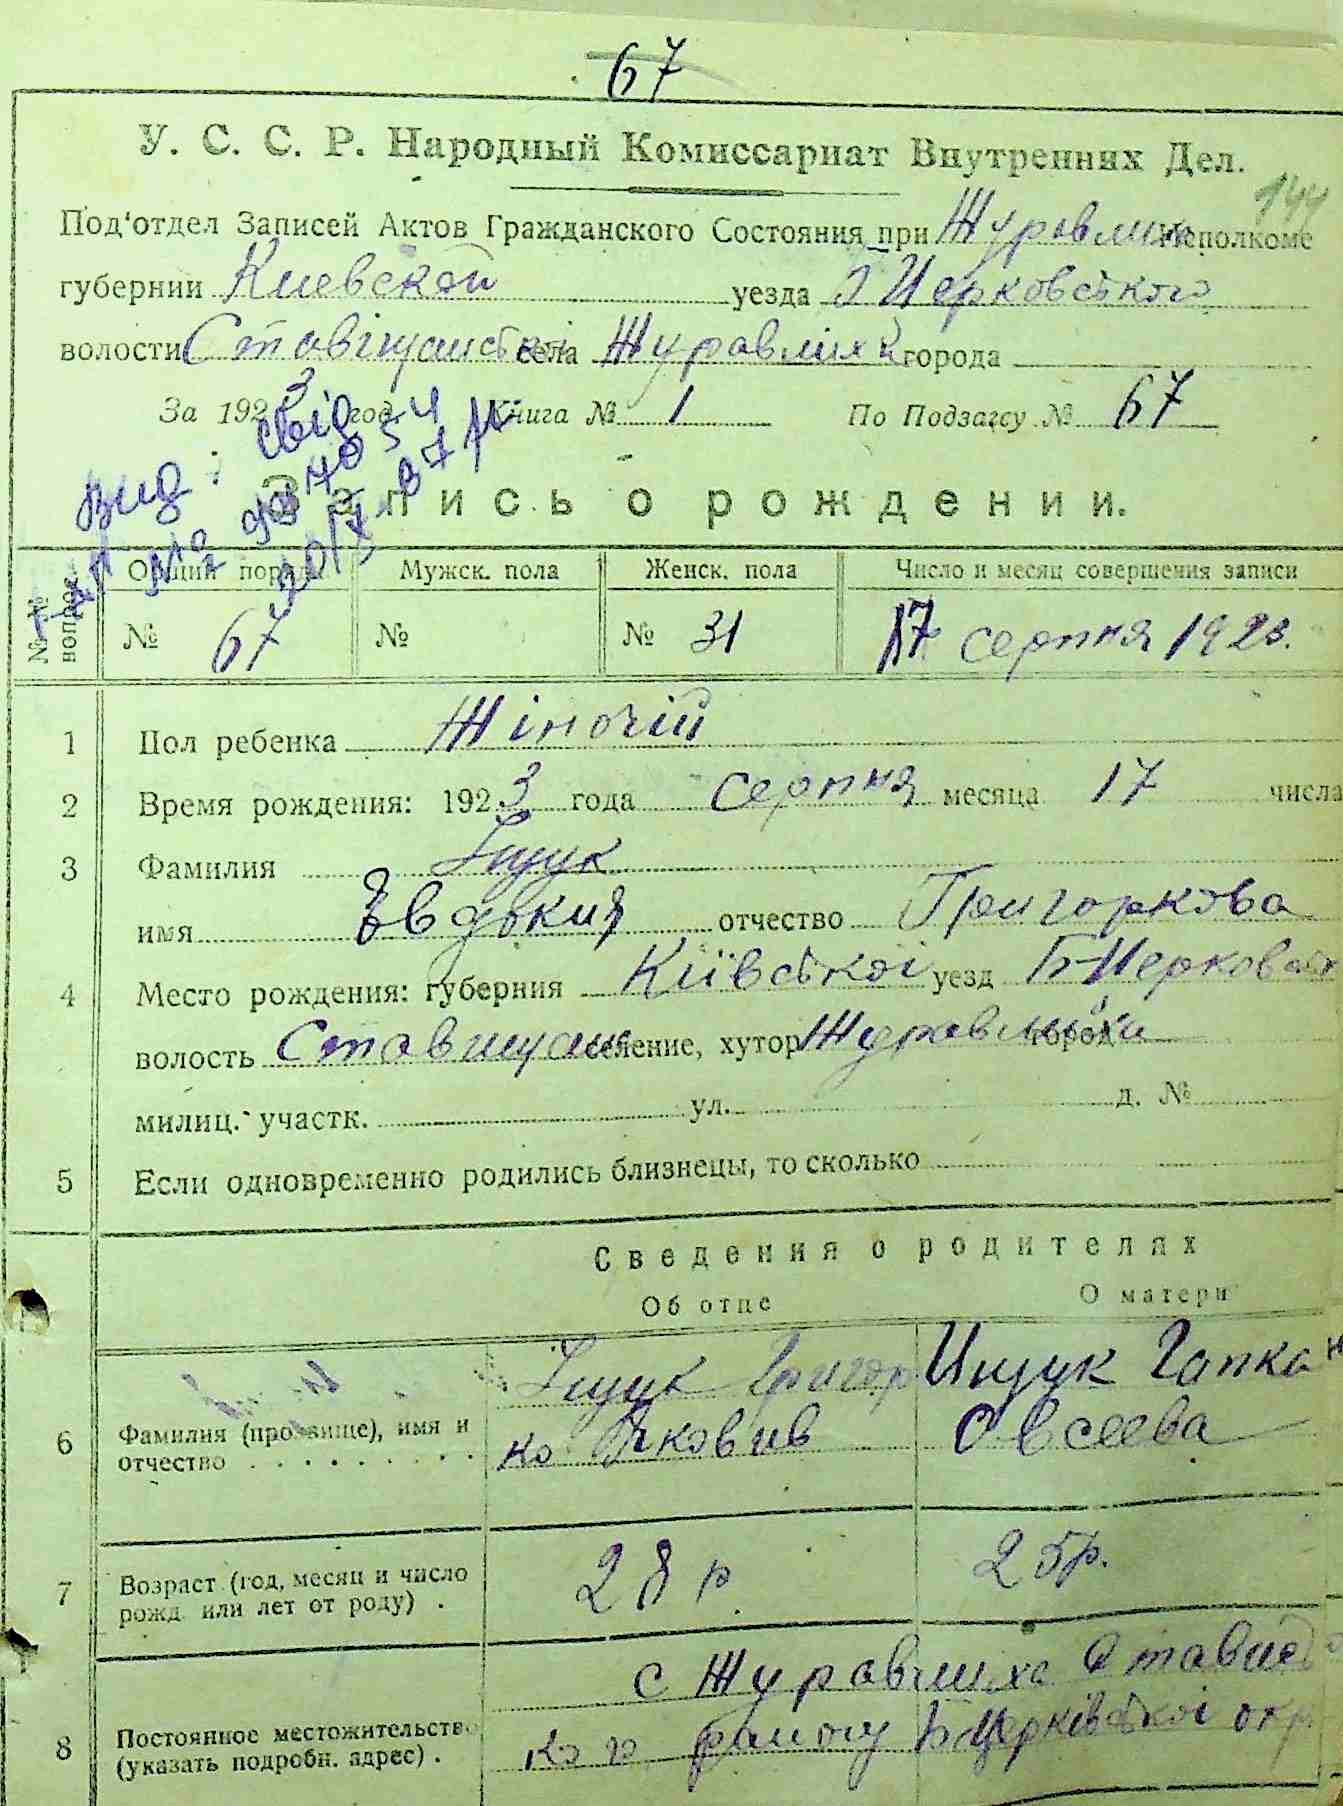 67
У. С. С. Р. Народный Комиссариат Внутренних Дел.
144
Под'отдел Записей Актов Гражданского Состояния при Журавлих Исполкоме
губернии Киевской уезда Б Церковського
волости Ставищанської села Журавлиха города
За 1923 год. Книга № 1 По Подзагсу № 67
вид. свід
Запись о рождении.
№№ вопрос. Общий поряд. Мужск. пола Женск. пола Число и месяц совершения записи
№ 67 № № 31 17 серпня 1923.
1 Пол ребенка Жіночій
2 Время рождения: 1923 года серпня месяца 17 числа
3 Фамилия Іщук
имя Євдокия отчество Григоркова
4 Место рождения: губерния Київської уезд Б-Церковськ
волость Ставищан селение, хутор Журавлиха город
милиц. участк. ул. д. №
5 Если одновременно родились близнецы, то сколько
Сведения о родителях
Об отце О матери
6 Фамилия (прозвище), имя и отчество Іщук Григор Ищук Гапка
ко Яковів Овсеева
7 Возраст (год, месяц и число рожд. или лет от роду) 28 р 25р.
8 Постоянное местожительство (указать подробн. адрес) с Журавлиха Ставищ
кого району Б Церківської окр